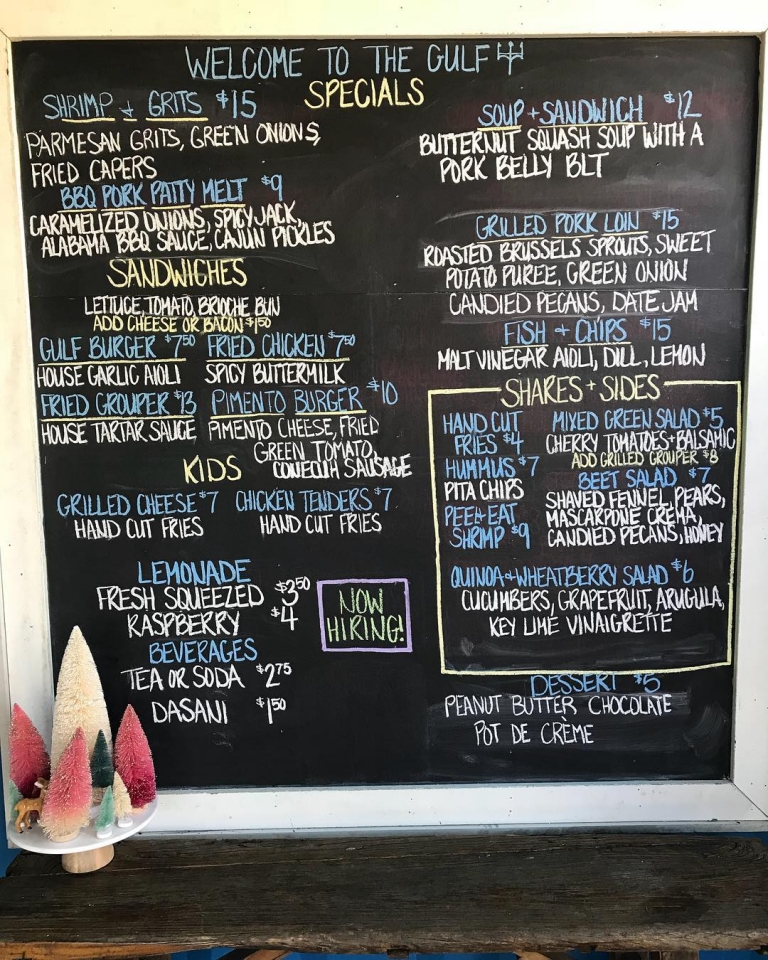 WELCOME TO THE GULF
SPECIALS
SHRIMP + GRITS $15
PARMESAN GRITS, GREEN ONIONS,
FRIED CAPERS
BBQ PORK PATTY MELT $9
CARAMELIZED ONIONS, SPICY JACK,
ALABAMA BBQ SAUCE, CAJUN PICKLES
SOUP + SANDWICH $12
BUTTERNUT SQUASH SOUP WITH A
PORK BELLY BLT
GRILLED PORK LOIN $15
ROASTED BRUSSELS SPROUTS, SWEET
POTATO PUREE, GREEN ONION
CANDIED PECANS, DATE JAM
FISH + CHIPS $15
MALT VINEGAR AIOLI, DILL, LEMON
SANDWICHES
LETTUCE, TOMATO, BRIOCHE BUN
ADD CHEESE OR BACON $1.50
GULF BURGER $7.50
HOUSE GARLIC AIOLI
FRIED CHICKEN $7.50
SPICY BUTTERMILK
FRIED GROUPER $13
HOUSE TARTAR SAUCE
PIMENTO BURGER $10
PIMENTO CHEESE, FRIED
GREEN TOMATO,
CONECUH SAUSAGE
KIDS
GRILLED CHEESE $7
HAND CUT FRIES
CHICKEN TENDERS $7
HAND CUT FRIES
LEMONADE
FRESH SQUEEZED $3.50
RASPBERRY $4
BEVERAGES
TEA OR SODA $2.75
DASANI $1.50
NOW
HIRING!
SHARES + SIDES
HAND CUT
FRIES $4
HUMMUS $7
PITA CHIPS
PEEL+EAT
SHRIMP $9
MIXED GREEN SALAD $5
CHERRY TOMATOES+BALSAMIC
ADD GRILLED GROUPER $8
BEET SALAD $7
SHAVED FENNEL, PEARS,
MASCARPONE CREMA,
CANDIED PECANS, HONEY
QUINOA+WHEATBERRY SALAD $6
CUCUMBERS, GRAPEFRUIT, ARUGULA,
KEY LIME VINAIGRETTE
DESSERT $5
PEANUT BUTTER, CHOCOLATE
POT DE CRÈME